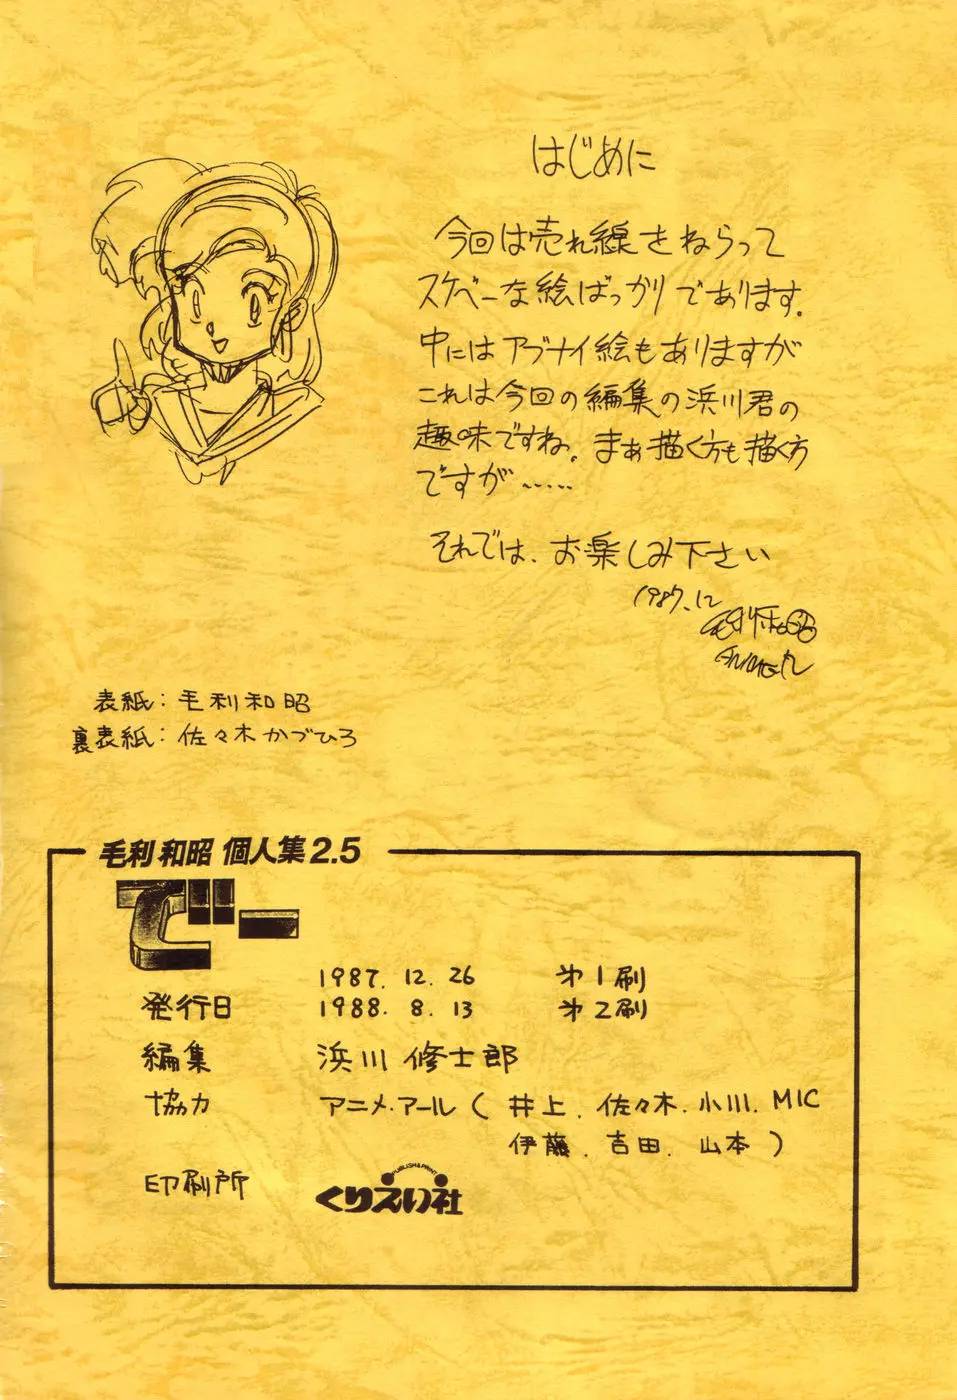 はじめに
今回は売れ線をねらって
スケベーな絵ばっかりであります。
中にはアブナイ絵もありますが
これは今回の編集の浜川君の
趣味ですね。まぁ描く方も描く方
ですが……
それでは、お楽しみ下さい
1987.12
毛利和昭
表紙：毛利和昭
裏表紙：佐々木かづひろ
毛利和昭 個人集2.5
でー
1987.12.26 第1刷
発行日 1988.8.13 第2刷
編集 浜川修士郎
協力 アニメ・アール（井上.佐々木.小川.MIC
伊藤.吉田.山本）
PUBLISH&PRINT
印刷所 くりえい社